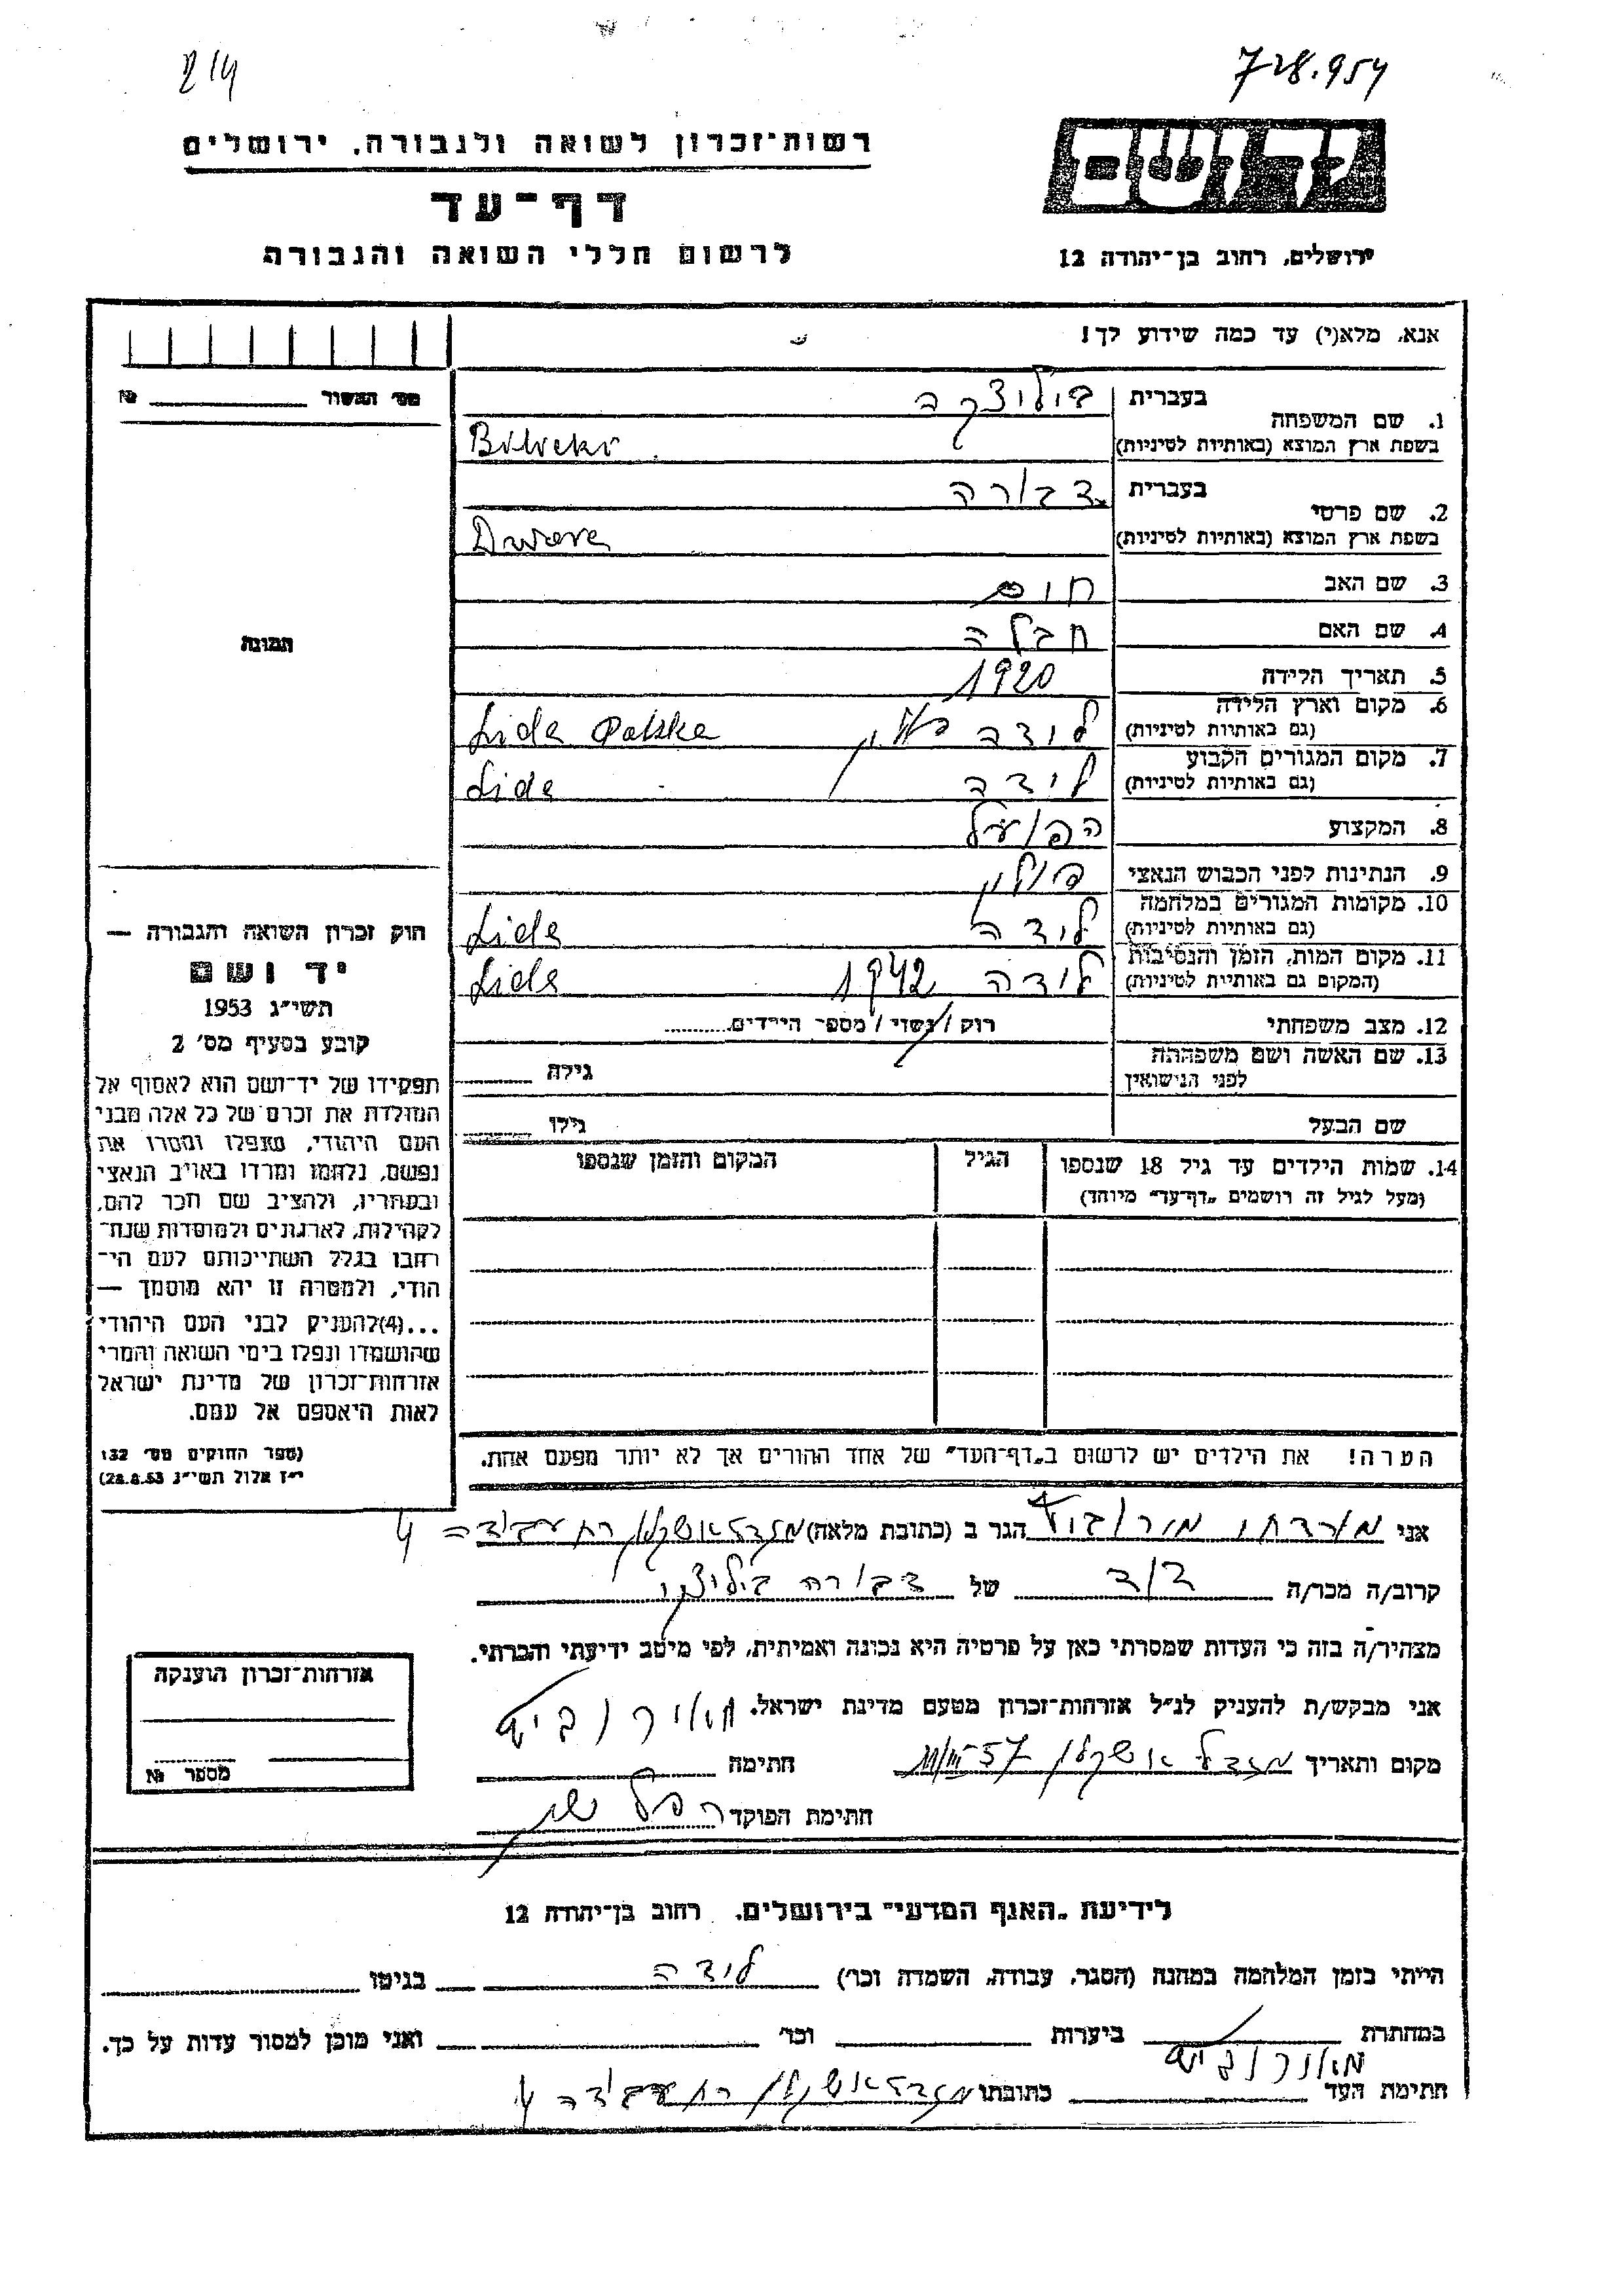 214
728.954
רשות־זכרון לשואה ולגבורה, ירושלים
דף־עד
לרשום חללי השואה והגבורה
ירושלים, רחוב בן־יהודה 12
אנא, מלא(י) עד כמה שידוע לך!
מס' האשור №
1. שם המשפחה
בעברית בילוצקה
בשפת ארץ המוצא (באותיות לטיניות)
2. שם פרטי
בעברית דבורה
בשפת ארץ המוצא (באותיות לטיניות) Dwora
3. שם האב חיים
4. שם האם
5. תאריך הלידה 1920
6. מקום וארץ הלידה
(גם באותיות לטיניות) לידה פולין Lida Polska
7. מקום המגורים הקבוע
(גם באותיות לטיניות) לידה Lida
8. המקצוע הפועל
9. הנתינות לפני הכבוש הנאצי פולין
10. מקומות המגורים במלחמה
(גם באותיות לטיניות) לידה Lida
11. מקום המות, הזמן והנסיבות
(המקום גם באותיות לטיניות) לידה 1942 Lida
12. מצב משפחתי רוק / נשוי / מספר הילדים
13. שם האשה ושם משפחתה
לפני הנישואין גילה
שם הבעל גילו
14. שמות הילדים עד גיל 18 שנספו הגיל המקום והזמן שנספו
(מעל לגיל זה רושמים „דף־עד" מיוחד)
הערה! את הילדים יש לרשום ב„דף־העד" של אחד ההורים אך לא יותר מפעם אחת.
תמונה
חוק זכרון השואה והגבורה —
יד ושם
תשי״ג 1953
קובע בסעיף מס׳ 2
תפקידו של יד־ושם הוא לאסוף אל
המולדת את זכרם של כל אלה מבני
העם היהודי, שנפלו ומסרו את
נפשם, נלחמו ומרדו באויב הנאצי
ובעוזריו, ולהציב שם וזכר להם,
לקהילות, לארגונים ולמוסדות שנח־
רבו בגלל השתייכותם לעם הי־
הודי, ולמטרה זו יהא מוסמך —
...(4)להעניק לבני העם היהודי
שהושמדו ונפלו בימי השואה והמרי
אזרחות־זכרון של מדינת ישראל
לאות היאספם אל עמם.
(ספר החוקים מס׳ 132
י״ז אלול תשי״ג 28.8.53)
אני מורדחי הגר ב (כתובת מלאה) מגדל אשקלון רח 4
קרוב/ה מכר/ה דוד של דבורה בילוצקי
מצהיר/ה בזה כי העדות שמסרתי כאן על פרטיה היא נכונה ואמיתית, לפי מיטב ידיעתי והכרתי.
אני מבקש/ת להעניק לנ״ל אזרחות־זכרון מטעם מדינת ישראל.
מקום ותאריך מגדל אשקלון 11/III-57 חתימה
חתימת הפוקד
אזרחות־זכרון הוענקה
מספר №
לידיעת „האגף המדעי" בירושלים, רחוב בן־יהודה 12
הייתי בזמן המלחמה במחנה (הסגר, עבודה, השמדה וכו׳) לידה בגיטו
במחתרת ביערות וכו׳ ואני מוכן למסור עדות על כך.
חתימת העד כתובתו מגדל אשקלון רח 4